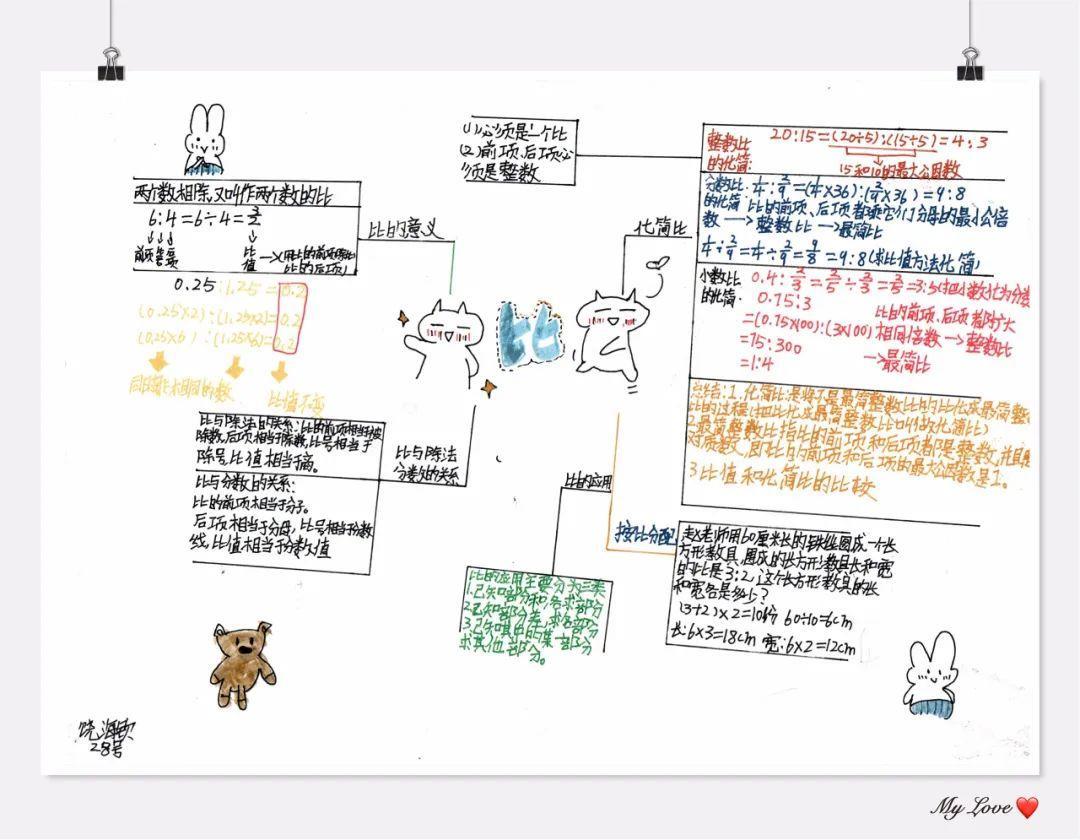 两个数相除,又叫作两个数的比
6:4=6÷4=3/2
前项 比号 后项
比值
→(用比的前项除以
比的后项)
比的意义
0.25:1.25=0.2
(0.25×2):(1.25×2)=0.2
(0.25×6):(1.25×6)=0.2
相同的数
比值不变
比
比与除法的关系:比的前项相当于被
除数,后项相当于除数,比号相当于
除号,比值相当于商。
比与分数的关系:
比的前项相当于分子。
后项相当于分母,比号相当于分数
线,比值相当于分数值
比与除法
分数的关系
(1)必须是一个比
(2)前项、后项必
须是整数
化简比
整数比
的化简:
20:15=(20÷5):(15÷5)=4:3
15和10的最大公因数
分数比
的化简
1/4:2/9=(1/4×36):(2/9×36)=9:8
比的前项、后项都乘它们分母的最小公倍
数→整数比→最简比
1/4:2/9=1/4÷2/9=9/8=9:8(求比值方法化简)
小数比
的化简:
0.4:2/3=2/5÷2/3=3/5=3:5(把小数化为分数
0.75:3
比的前项、后项都扩大
=(0.75×100):(3×100)
相同倍数→整数比
=75:300
→最简比
=1:4
总结:1.化简比:是将不是最简整数比的比化成最简整
比的过程(把比化成最简整数比叫做化简比)
2.最简整数比指比的前项和后项都是整数,并且
对质数,即比的前项和后项的最大公因数是1。
3.比值和化简比的比较
比的应用
比的应用主要分为三类
1.已知部分和,各求部分
2.已知部分差,求各部分
3.已知其中的某一部分
求其他部分。
按比分配
赵老师用60厘米长的铁丝围成一个长
方形教具,围成的长方形教具长和宽
的比是3:2,这个长方形教具的长
和宽各是多少?
(3+2)×2=10份 60÷10=6cm
长:6×3=18cm 宽:6×2=12cm
28号
My Love